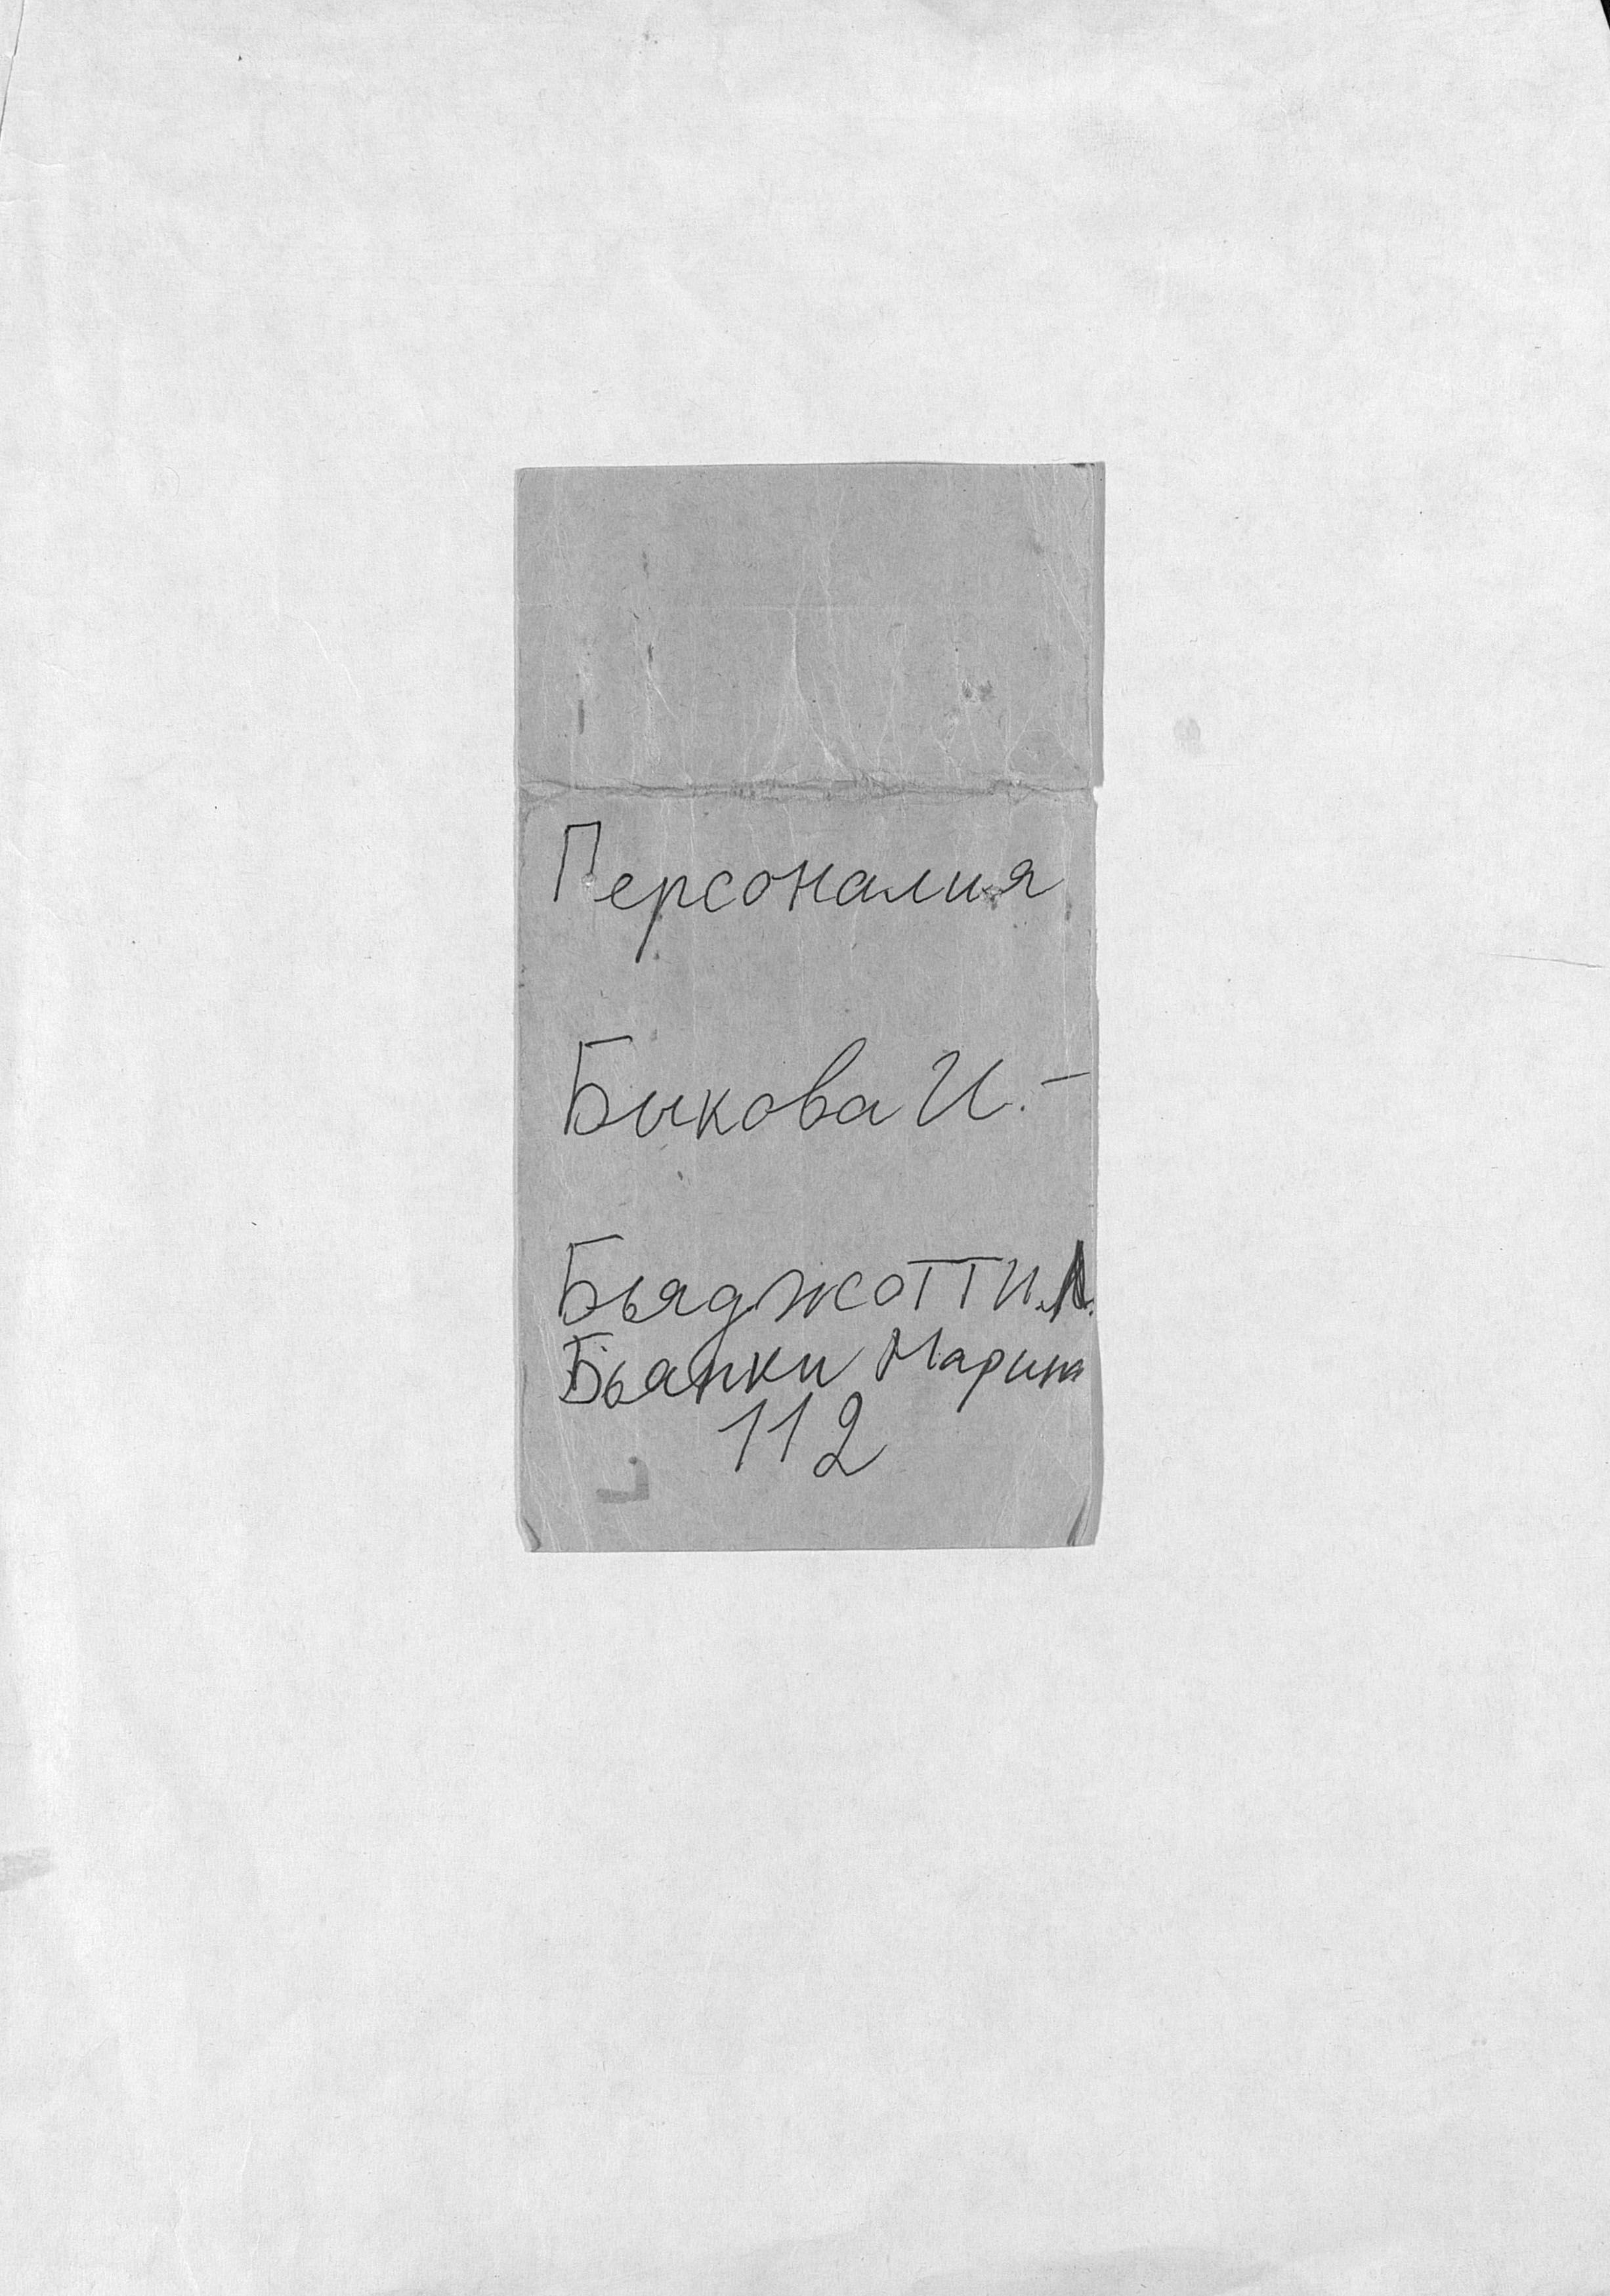 Персоналия
Быкова И. –
Бьяджотти Л.
Бьянки Марина
112